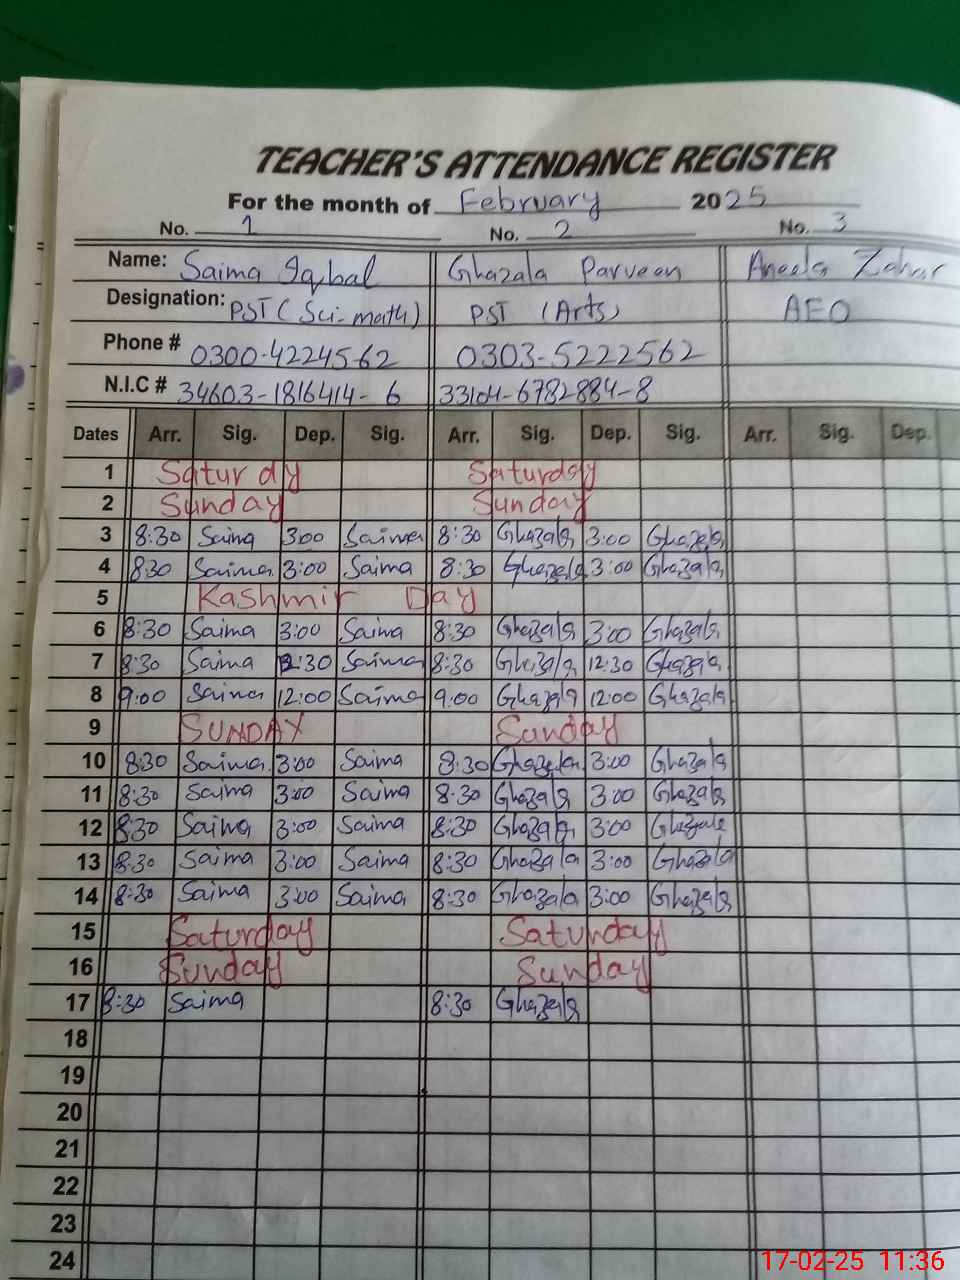 TEACHER'S ATTENDANCE REGISTER
For the month of February 2025
No. 1 No. 2 No. 3
Name: Saima Iqbal Ghazala Parveen Aneela Zahar
Designation: PST (Sci-math) PST (Arts) AEO
Phone # 0300-4224562 0303-5222562
N.I.C # 34603-1816414-6 33104-6782884-8
Dates Arr. Sig. Dep. Sig. Arr. Sig. Dep. Sig. Arr. Sig. Dep.
1 Saturdy Saturday
2 Sunday Sunday
3 8:30 Saima 3:00 Saima 8:30 Ghazala 3:00 Ghazala
4 8:30 Saima 3:00 Saima 8:30 Ghazala 3:00 Ghazala
5 Kashmir Day
6 8:30 Saima 3:00 Saima 8:30 Ghazala 3:00 Ghazala
7 8:30 Saima 12:30 Saima 8:30 Ghazala 12:30 Ghazala
8 9:00 Saima 12:00 Saima 9:00 Ghazala 12:00 Ghazala
9 SUNDAY Sunday
10 8:30 Saima 3:00 Saima 8:30 Ghazala 3:00 Ghazala
11 8:30 Saima 3:00 Saima 8:30 Ghazala 3:00 Ghazala
12 8:30 Saima 3:00 Saima 8:30 Ghazala 3:00 Ghazala
13 8:30 Saima 3:00 Saima 8:30 Ghazala 3:00 Ghazala
14 8:30 Saima 3:00 Saima 8:30 Ghazala 3:00 Ghazala
15 Saturday Saturday
16 Sunday Sunday
17 8:30 Saima 8:30 Ghazala
18
19
20
21
22
23
24
17-02-25 11:36